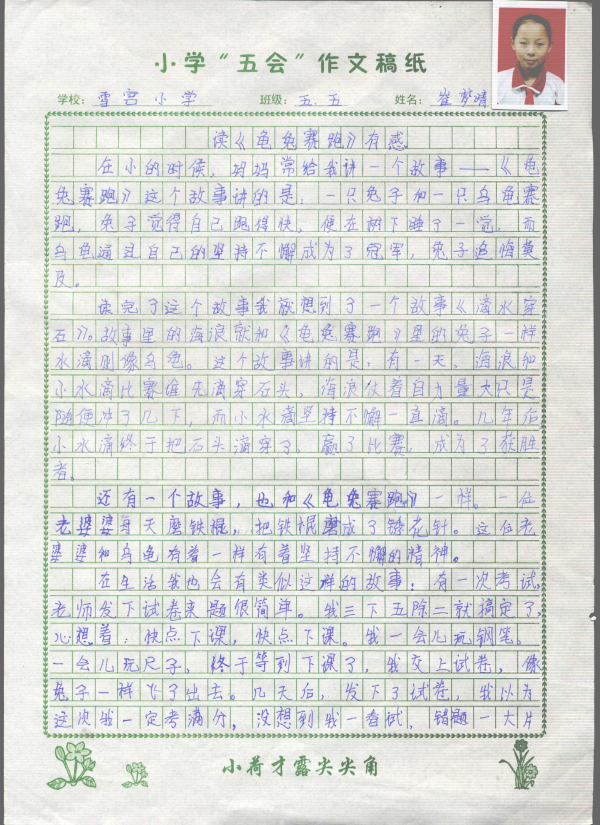 小学“五会”作文稿纸
学校：雪宫小学 班级：五.五 姓名：崔梦晴
读《龟兔赛跑》有感
在小的时候，妈妈常给我讲一个故事——《龟
兔赛跑》这个故事讲的是，一只兔子和一只乌龟赛
跑，兔子觉得自己跑得快，便在树下睡了一觉，而
乌龟通过自己的坚持不懈成为了冠军，兔子追悔莫
及。
读完了这个故事我就想到了一个故事《滴水穿
石》。故事里的海浪就和《龟兔赛跑》里的兔子一样
水滴则像乌龟。这个故事讲的是，有一天，海浪和
小水滴比赛谁先滴穿石头，海浪仗着自力量大只是
随便冲了几下，而小水滴坚持不懈一直滴。几年后
小水滴终于把石头滴穿了，赢了比赛，成为了获胜
者。
还有一个故事，也和《龟兔赛跑》一样。一位
老婆婆每天磨铁棍，把铁棍磨成了绣花针。这位老
婆婆和乌龟有着一样有着坚持不懈的精神。
在生活我也会有类似这样的故事：有一次考试，
老师发下试卷来题很简单。我三下五除二就搞定了，
心想着：快点下课，快点下课。我一会儿玩钢笔，
一会儿玩尺子，终于等到下课了，我交上试卷，像
兔子一样飞了出去。几天后，发下了试卷，我以为
这次我一定考满分，没想到我一看试，错题一大片
小荷才露尖尖角